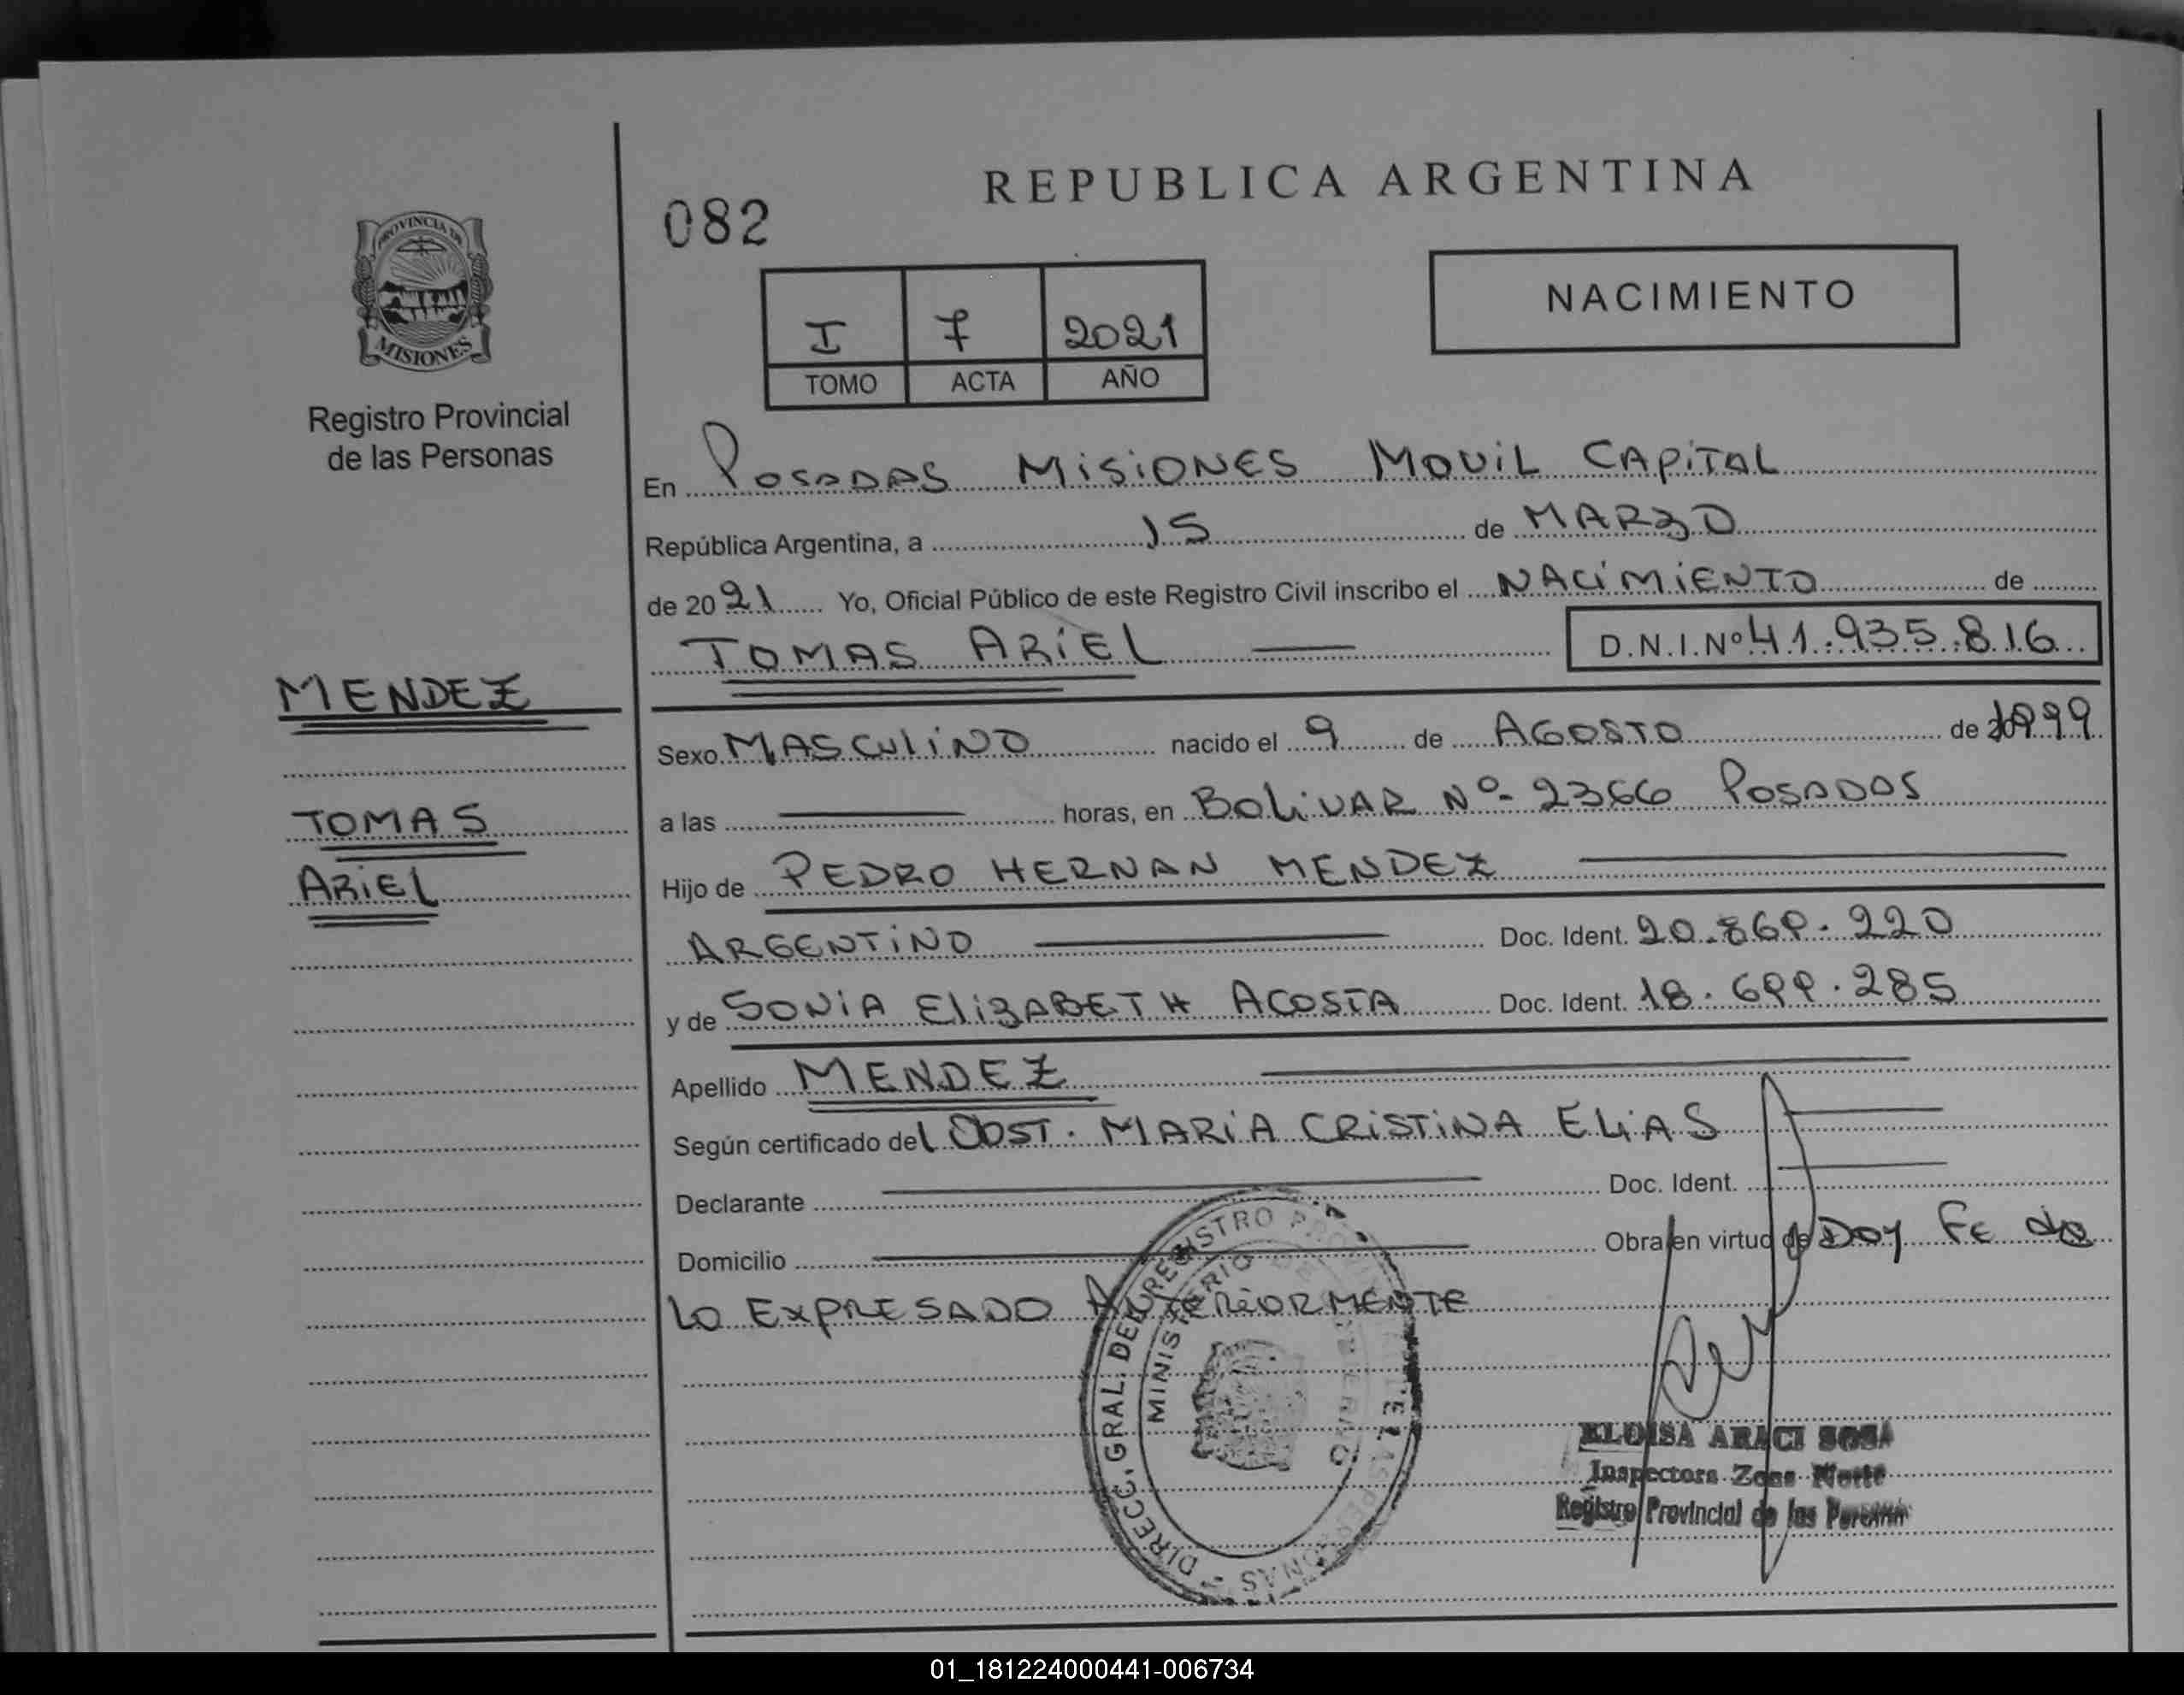 REPUBLICA ARGENTINA
082
PROVINCIA DE
MISIONES
Registro Provincial
de las Personas
I 7 2021
TOMO ACTA AÑO
NACIMIENTO
En POSADAS MISIONES MOVIL CAPITAL
República Argentina, a 15 de MARZO
de 2021 Yo, Oficial Público de este Registro Civil inscribo el NACIMIENTO de
TOMAS ARIEL D.N.I.Nº 41.935.816
MENDEZ
TOMAS
ARIEL
Sexo MASCULINO nacido el 9 de AGOSTO de 1999
a las horas, en BOLIVAR Nº 2366 POSADAS
Hijo de PEDRO HERNAN MENDEZ
ARGENTINO Doc. Ident. 20.869.220
y de SONIA ELIZABETH ACOSTA Doc. Ident. 18.699.285
Apellido MENDEZ
Según certificado del OBST. MARIA CRISTINA ELIAS
Declarante Doc. Ident.
Domicilio Obra en virtud de DOY FE de
LO EXPRESADO ANTERIORMENTE
DIRECC. GRAL. DEL REGISTRO
MINISTERIO
ELOISA ARACI SOSA
Inspectora Zona Norte
Registro Provincial de las Personas
01_181224000441-006734